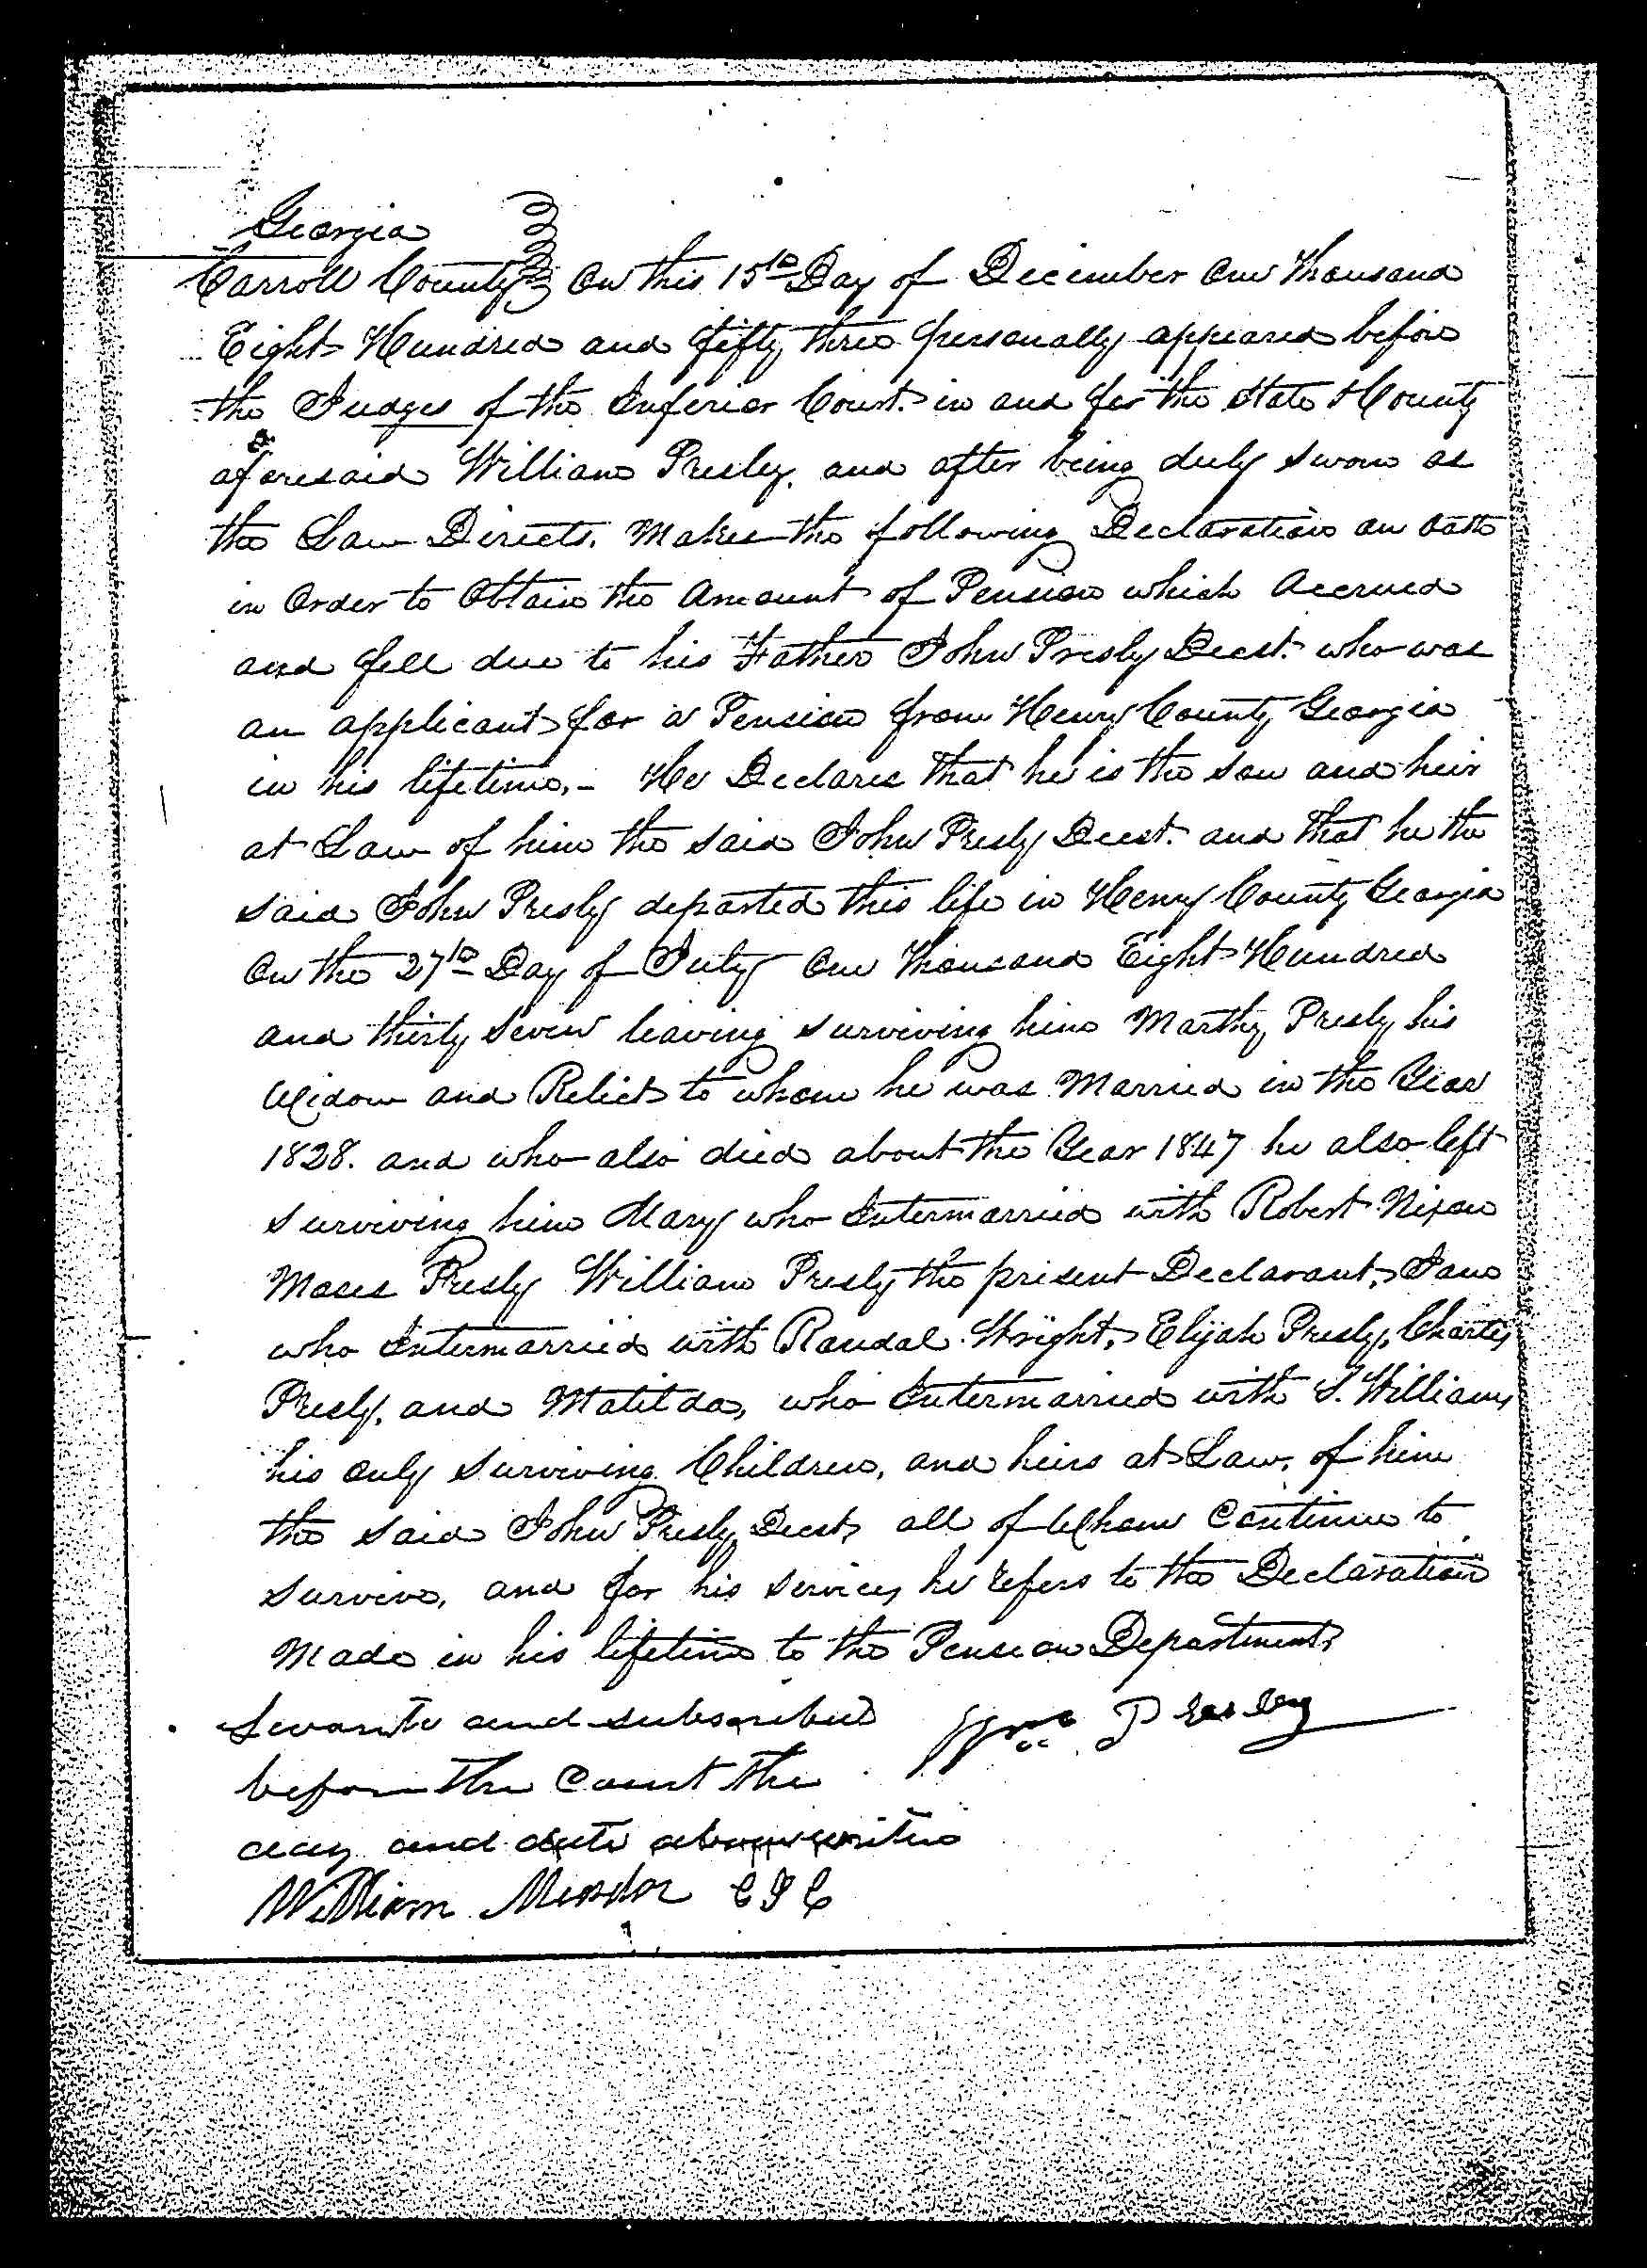 Georgia
Carroll County On this 15th Day of December One Thousand
Eight Hundred and fifty three personally appeared before
the Judges of the Inferior Court in and for the State & County
aforesaid William Presley. and after being duly sworn as
the Law Directs. Makes the following Declaration on oath
in Order to Obtain the Amount of Pension which Accrued
and fell due to his Father John Presly Decst. who was
an applicant for a Pension from Henry County Georgia
in his lifetime.- He Declares that he is the son and heir
at Law of him the said John Presly Decst. and that he the
said John Presly departed this life in Henry County Georgia
On the 27th Day of July One Thousand Eight Hundred
and thirty Seven leaving surviving him Marthy Presly his
Widow and Relict to whom he was Married in the Year
1828. and who also died about the Year 1847 he also left
surviving him Mary who Intermarried with Robert Nixon
Moses Presly William Presly the present Declarant, Jane
who Intermarried with Randal Wright, Elijah Presly, Charty
Presly, and Matilda, who Intermarried with S. Williams
his only surviving Children, and heirs at Law, of him
the said John Presly Decst, all of Whom Continue to
survive, and for his services he refers to the Declaration
Made in his lifetime to the Pension Department.
Sworn to and subscribed Wm Presley
before the Court the
day and date above writen
William CIC